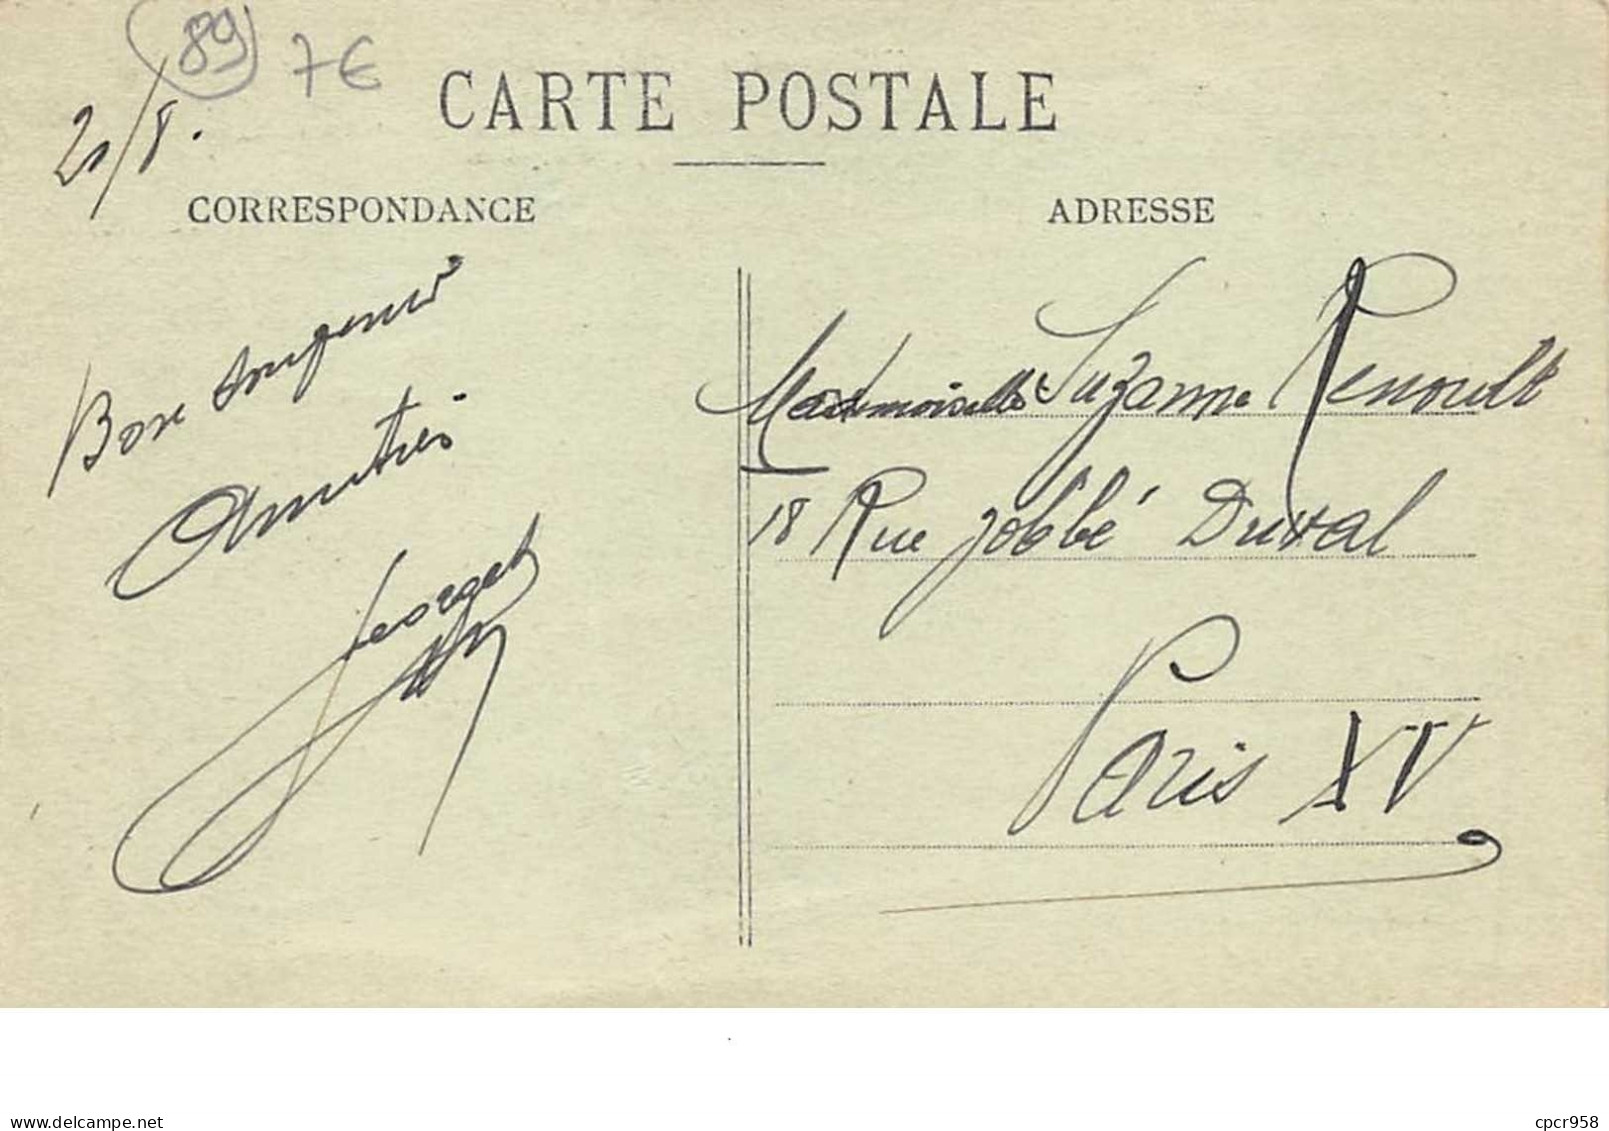 89 7€
CARTE POSTALE
21/8.
CORRESPONDANCE
ADRESSE
Bon Souvenir
Amitiés
Georget
Mademoiselle Suzanne Renoult
18 Rue Jobbé Duval
Paris XV
delcampe.net
cpcr958